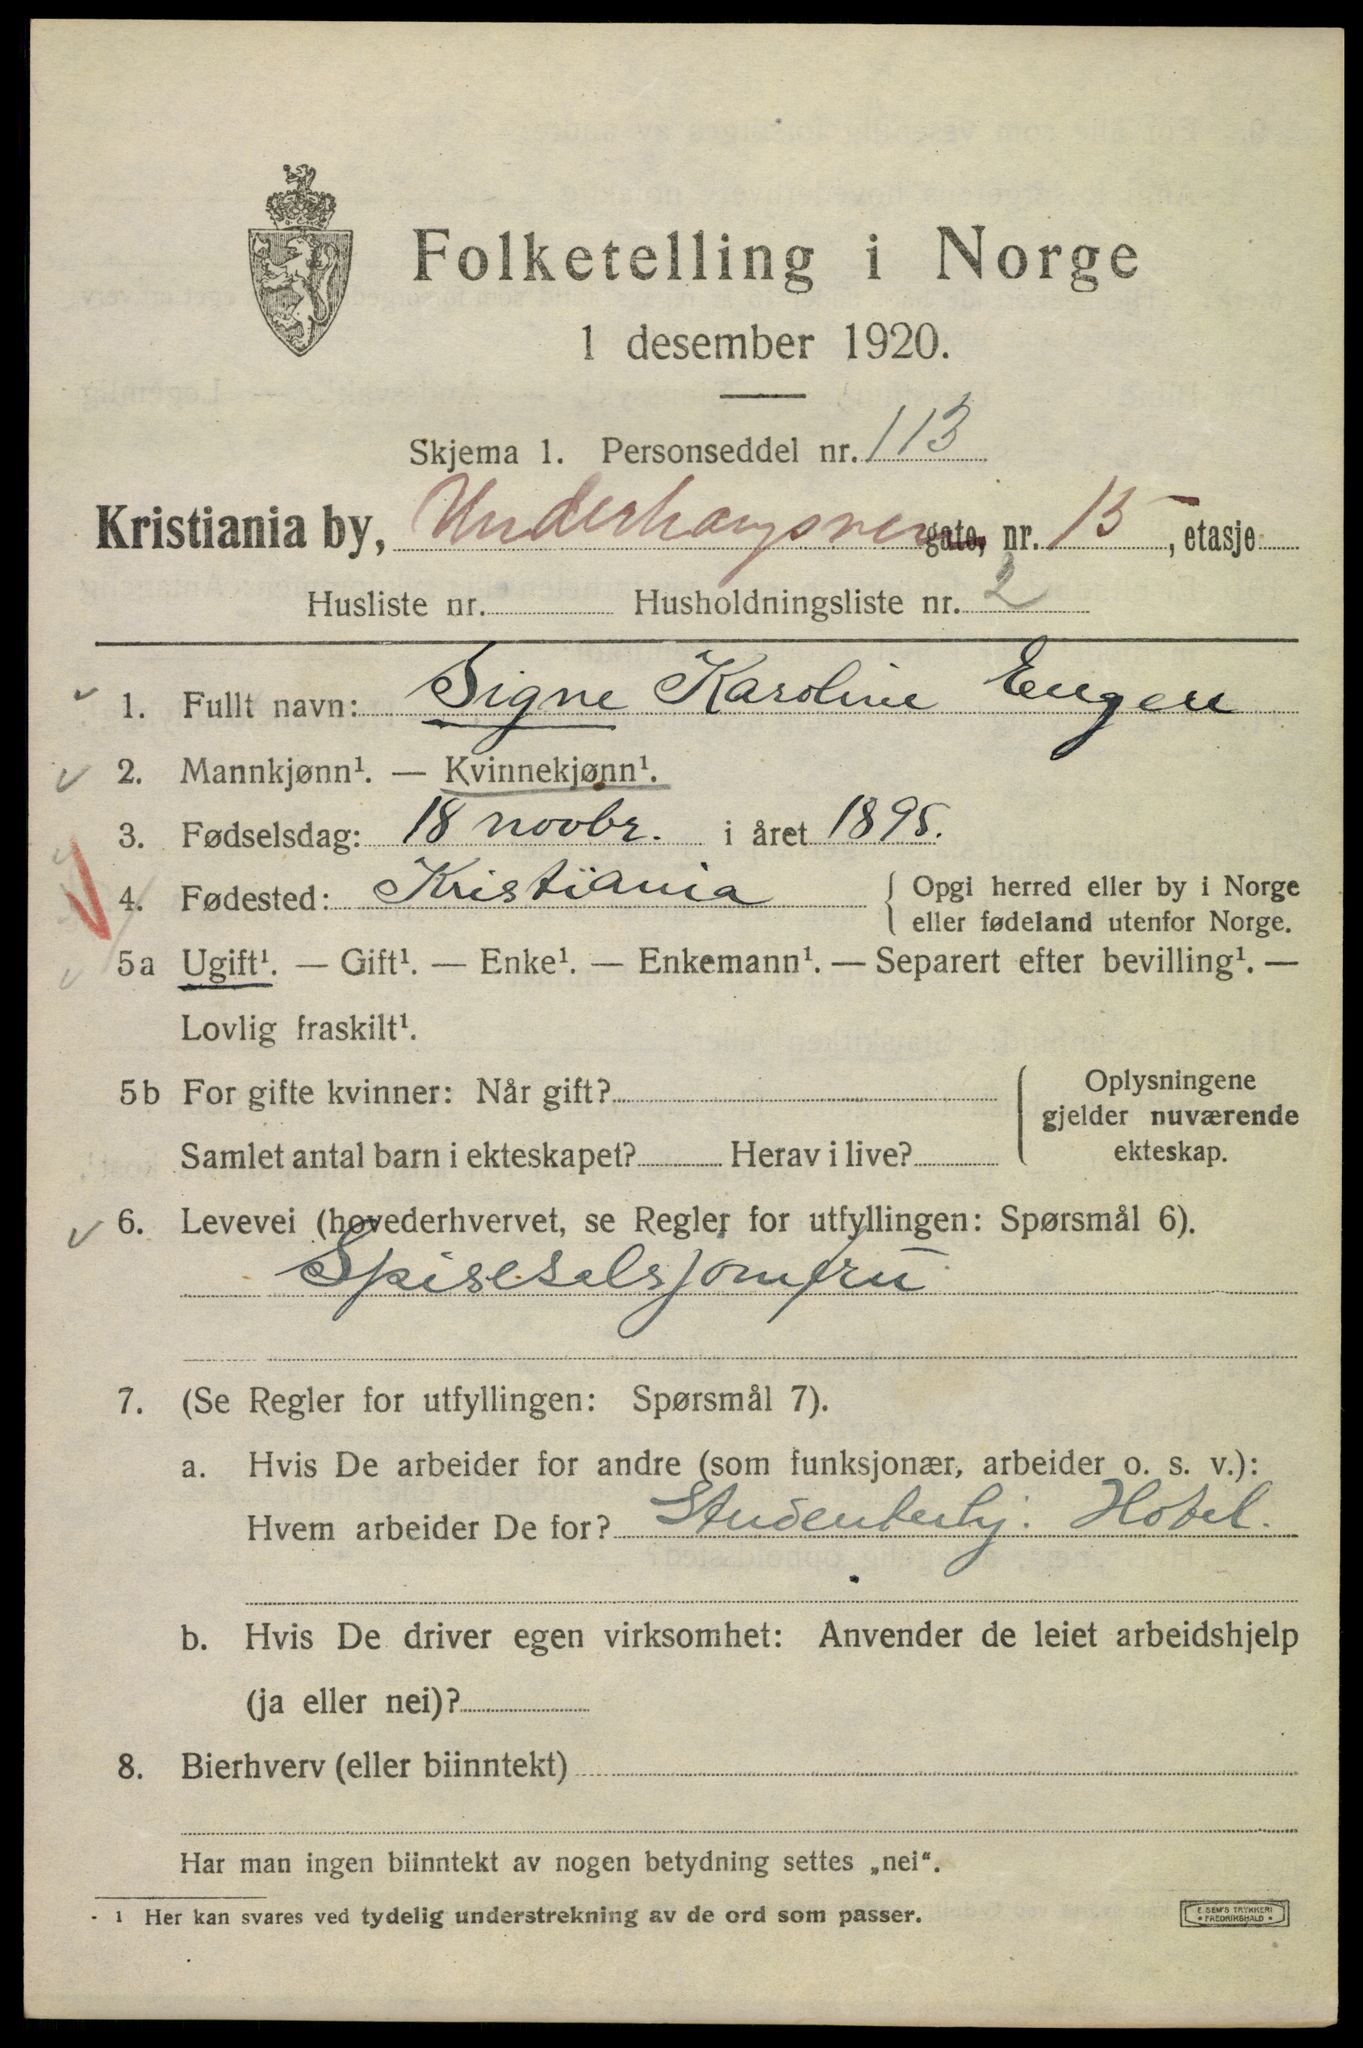 Folketelling i Norge
1 desember 1920.
Skjema 1. Personseddel nr. 113
Kristiania by, Underhaugsveien gate, nr. 15, etasje
Husliste nr. Husholdningsliste nr. 2
1. Fullt navn: Signe Karoline Engen
2. Mannkjønn¹. — Kvinnekjønn¹.
3. Fødselsdag: 18 novbr. i året 1895.
4. Fødested: Kristiania { Opgi herred eller by i Norge
eller fødeland utenfor Norge.
5a Ugift¹. — Gift¹. — Enke¹. — Enkemann¹. — Separert efter bevilling¹. —
Lovlig fraskilt¹.
5b For gifte kvinner: Når gift?
Samlet antal barn i ekteskapet? Herav i live?
{ Oplysningene
gjelder nuværende
ekteskap.
6. Levevei (hovederhvervet, se Regler for utfyllingen: Spørsmål 6).
Spisesalsjomfru
7. (Se Regler for utfyllingen: Spørsmål 7).
a. Hvis De arbeider for andre (som funksjonær, arbeider o. s. v.):
Hvem arbeider De for? Studenterhj. Hotel.
b. Hvis De driver egen virksomhet: Anvender de leiet arbeidshjelp
(ja eller nei)?
8. Bierhverv (eller biinntekt)
Har man ingen biinntekt av nogen betydning settes „nei“.
¹ Her kan svares ved tydelig understrekning av de ord som passer.
E. SEM'S TRYKKERI
FREDRIKSHALD